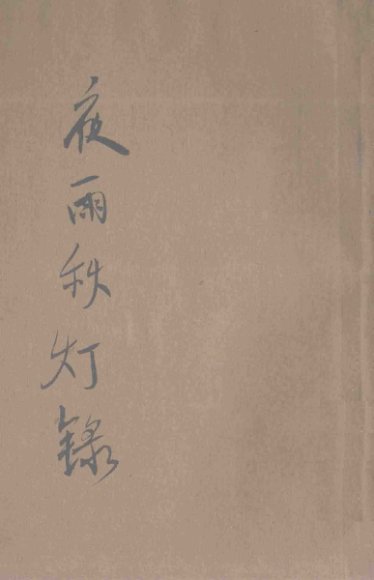 夜雨秋灯錄